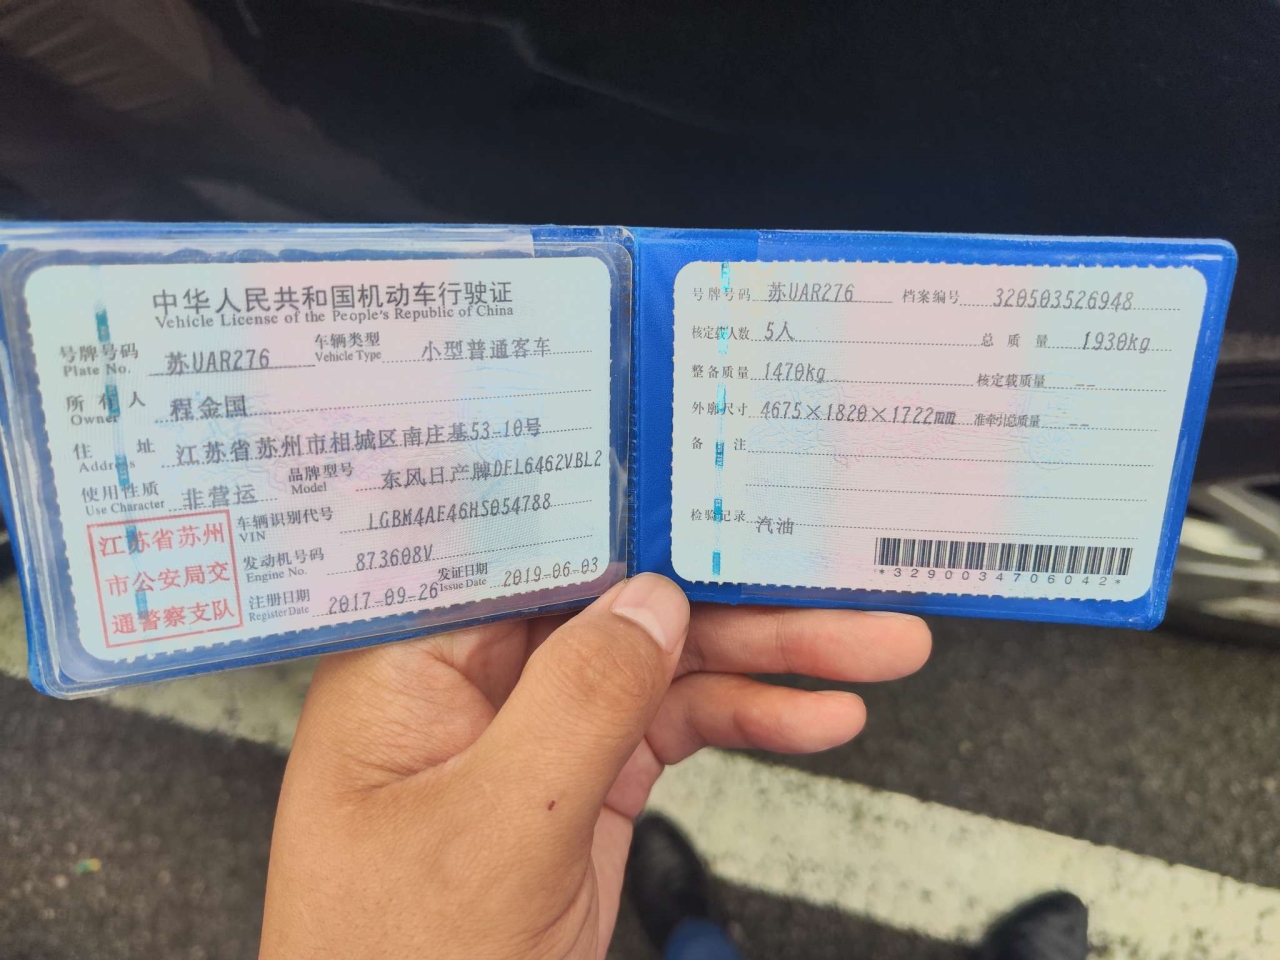 中华人民共和国机动车行驶证
Vehicle License of the People's Republic of China
号牌号码 苏UAR276 车辆类型 小型普通客车
Plate No. Vehicle Type
所有人 程金国
Owner
住址 江苏省苏州市相城区南庄基53-10号
Address
使用性质 非营运 品牌型号 东风日产牌DFL6462VBL2
Use Character Model
江苏省苏州
市公安局交
通警察支队
车辆识别代号 LGBM4AE46HS054788
VIN
发动机号码 873608V
Engine No.
注册日期 2017-09-26 发证日期 2019-06-03
Register Date Issue Date
号牌号码 苏UAR276 档案编号 320503526948
核定载人数 5人 总质量 1930kg
整备质量 1470kg 核定载质量 --
外廓尺寸 4675×1820×1722mm 准牵引总质量 --
备注
检验记录 汽油
*3290034706042*